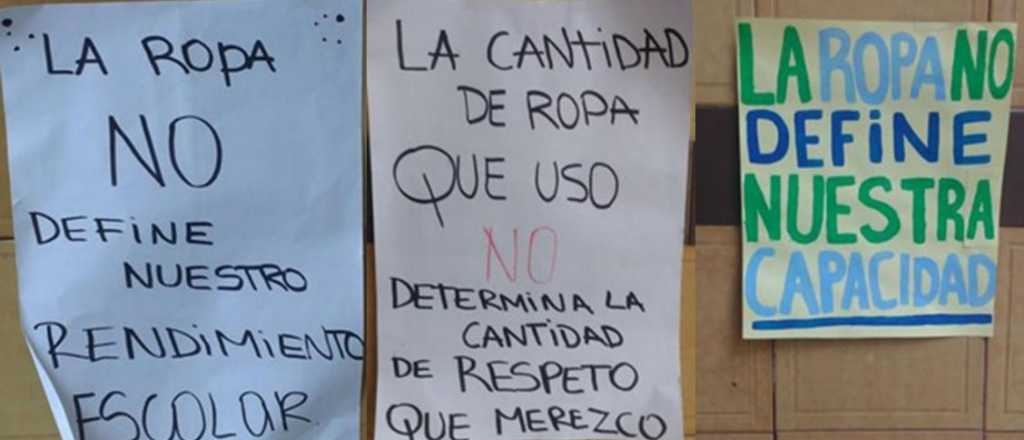 LA ROPA
NO
DEFiNE
NUESTRO
RENDiMiENTO
ESCOLAR
LA CANTiDAD
DE ROPA
QUE USO
NO
DETERMiNA LA
CANTiDAD
DE RESPETO
QUE MEREZCO
LA ROPA NO
DEFiNE
NUESTRA
CAPACiDAD